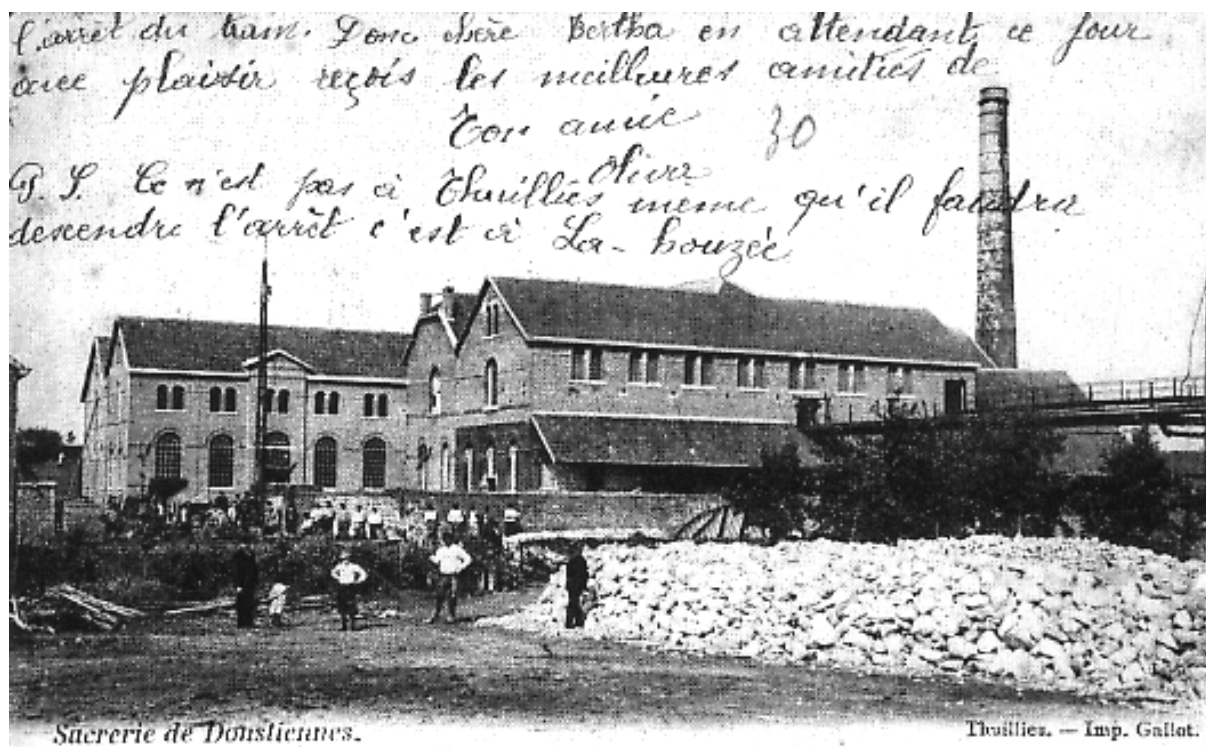 l'arrêt du tram. Donc chère Bertha en attendant ce jour
avec plaisir reçois les meilleures amitiés de
Ton amie
30
Oliva
P. S. Ce n'est pas à Thuillies même qu'il faudra
descendre l'arrêt c'est à La-houzée
Sucrerie de Donstiennes.
Thuillies. — Imp. Gallot.